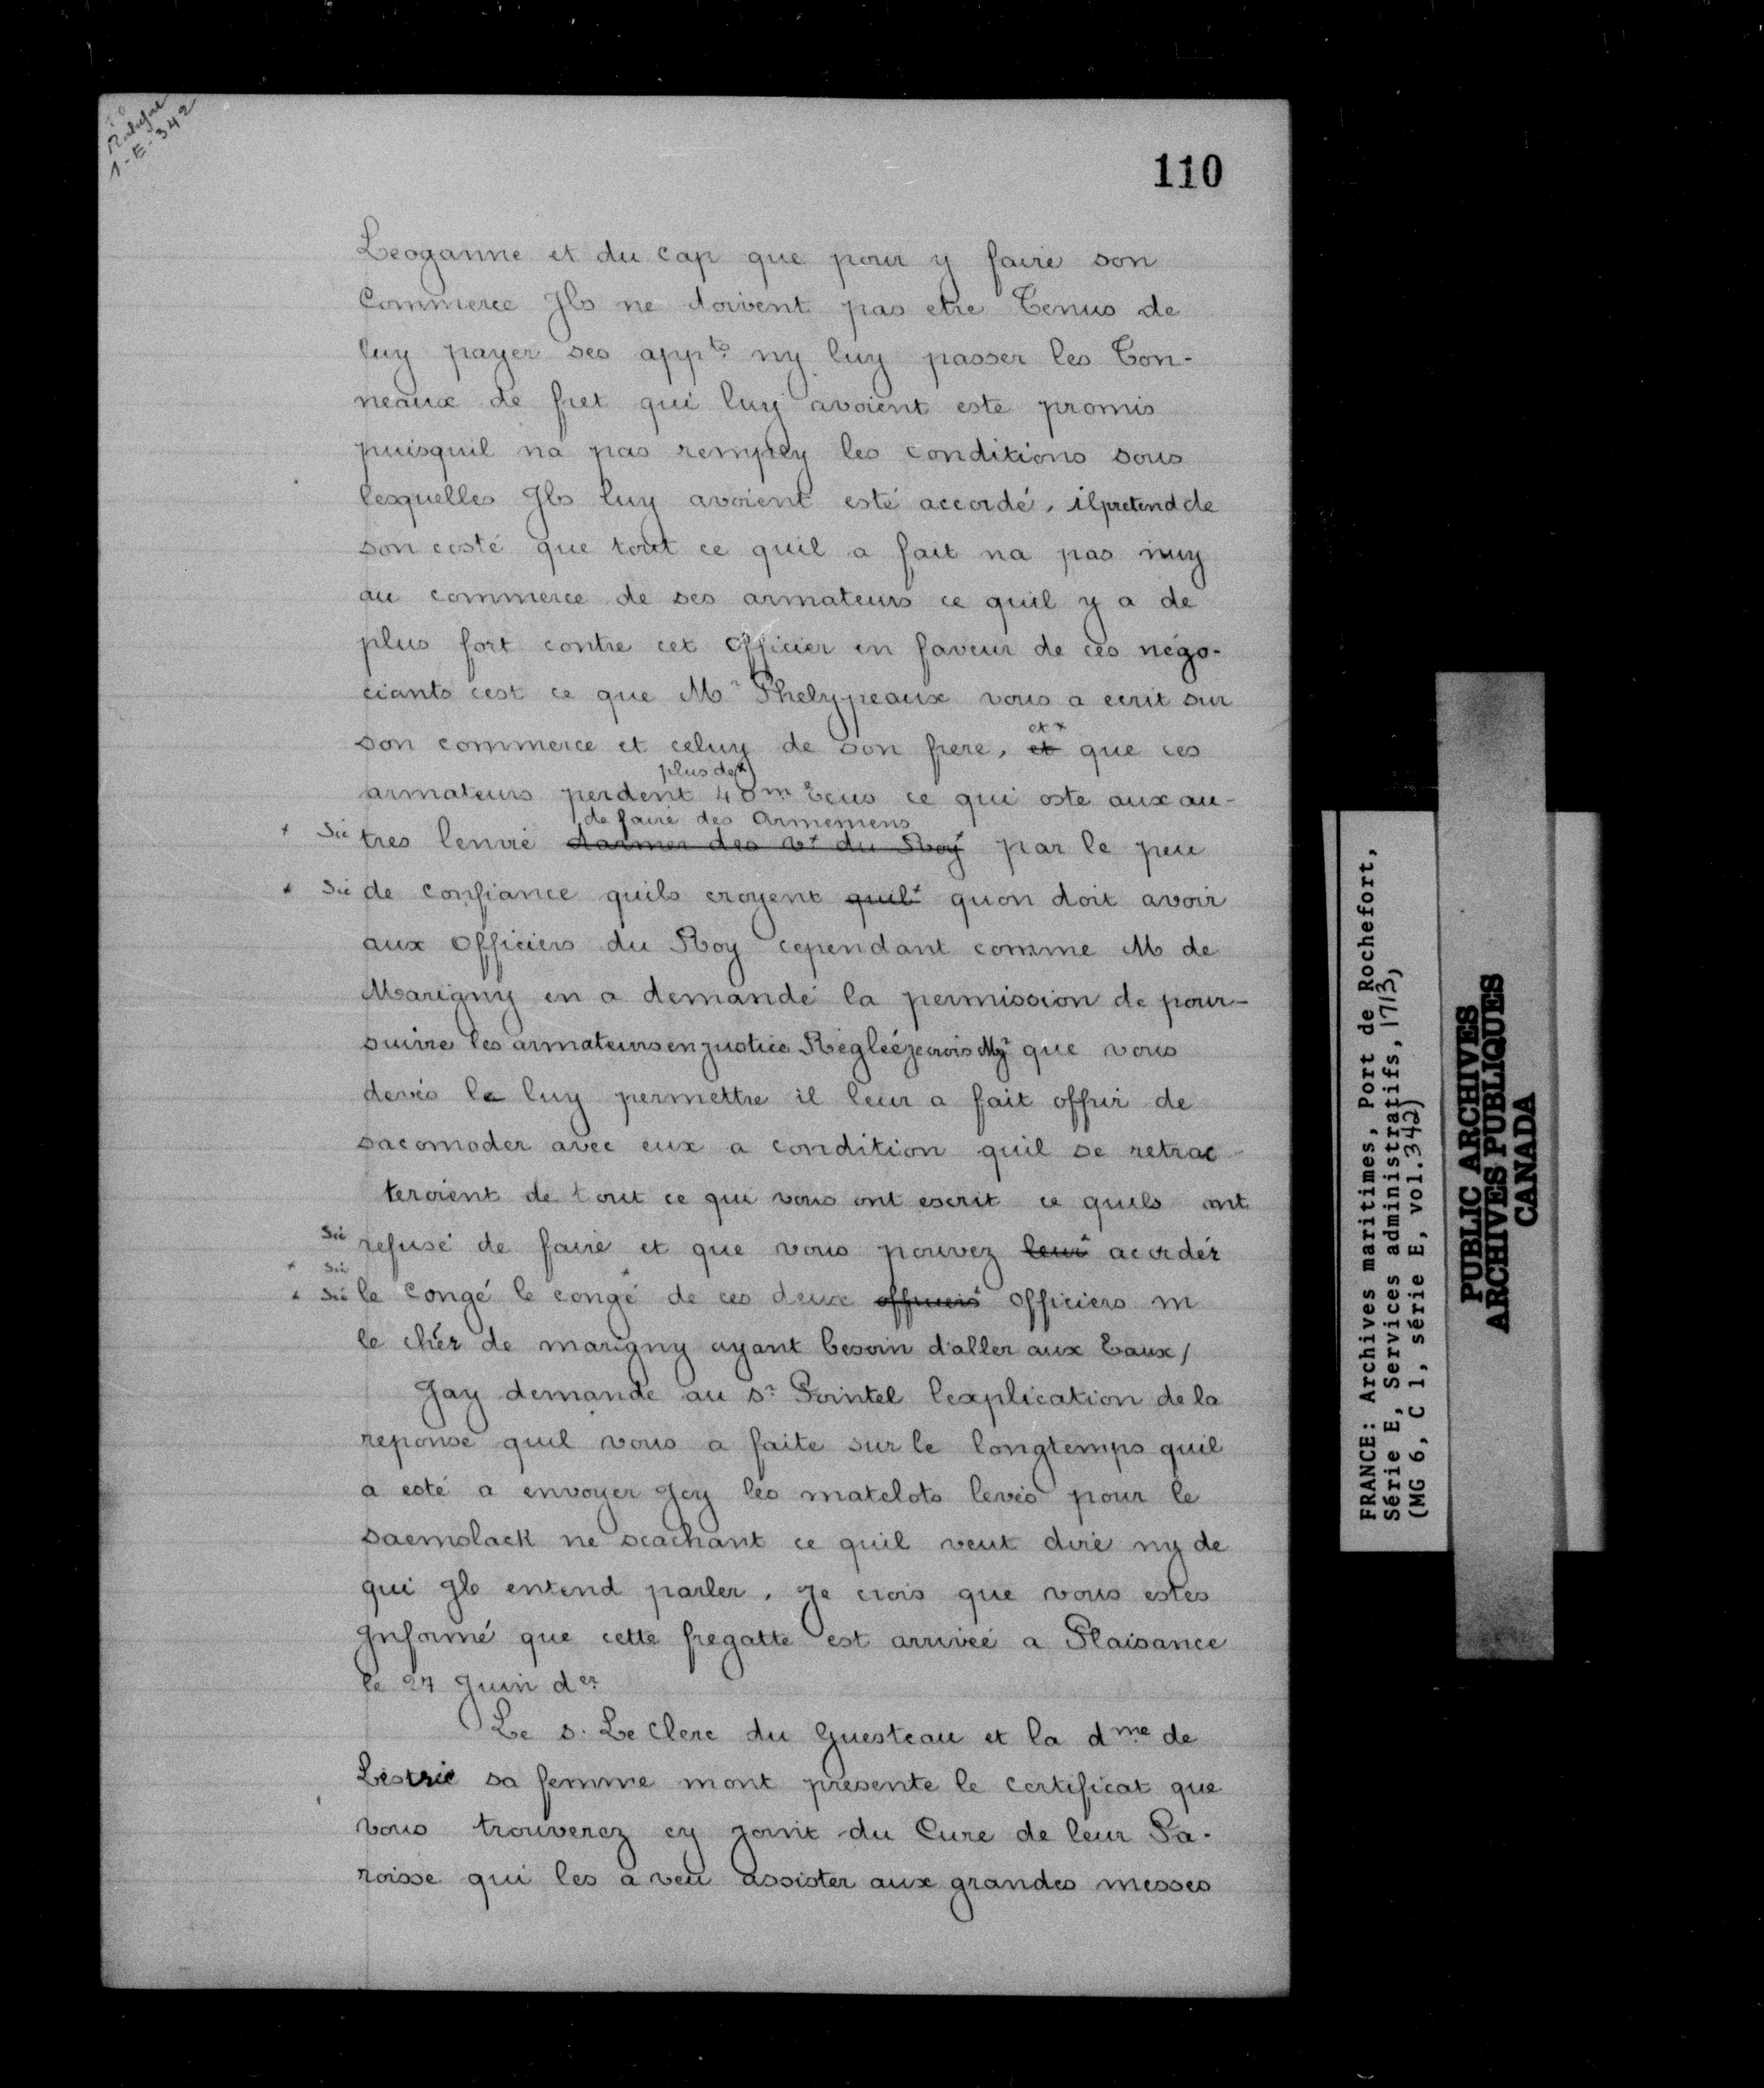 1-E-342
110
Leoganne et du cap que pour y faire son
Commerce Jls ne doivent pas etre Tenus de
luy payer ses appts ny luy passer les Ton-
neaux de fret qui luy avoient este promis
puisquil na pas remply les conditions sous
lesquelles Jls luy avoient esté accordé, il pretend de
son costé que tout ce quil a fait na pas nuy
au commerce de ses armateurs ce quil y a de
plus fort contre cet officier en faveur de ces négo-
ciants cest ce que Mr Phelypeaux vous a ecrit sur
et x
son commerce et celuy de son frere, et que ces
plus de x
armateurs perdent 40m Ecus ce qui oste aux au-
de faire des Armemens
x Sic tres lenvie darmer des vx du Roy par le peu
x Sic de confiance quils croyent quilx quon doit avoir
aux officiers du Roy cependant comme M de
Marigny en a demandé la permission de pour-
suivre les armateurs en justice Régleé je crois Mgr que vous
devés le luy permettre il leur a fait offrir de
sacomoder avec eux a condition quil se retrac-
teroient de tout ce qui vous ont escrit ce quils ont
Sic refusé de faire et que vous pouvez leur acordér
x Sic
x Sic le congé le congé de ces deux officiers officiers m
le chér de marigny ayant besoin d'aller aux Eaux/
Jay demandé au sr Pointel lexplication de la
reponse quil vous a faite sur le longtemps quil
a esté a envoyer Jcy les matelots levés pour le
saemslack ne scachant ce quil veut dire ny de
qui Jl entend parler. Je crois que vous estes
Jnformé que cette fregatte est arriveé a Plaisance
le 27 Juin der
Le s. Le Clerc du Guesteau et la dme de
Lestrie sa femme mont presente le certificat que
vous trouverez cy joint du Cure de leur Pa-
roisse qui les a veu assister aux grandes messes
FRANCE: Archives maritimes, Port de Rochefort,
Série E, Services administratifs, 1713,
(MG 6, C 1, série E, vol.342)
PUBLIC ARCHIVES
ARCHIVES PUBLIQUES
CANADA